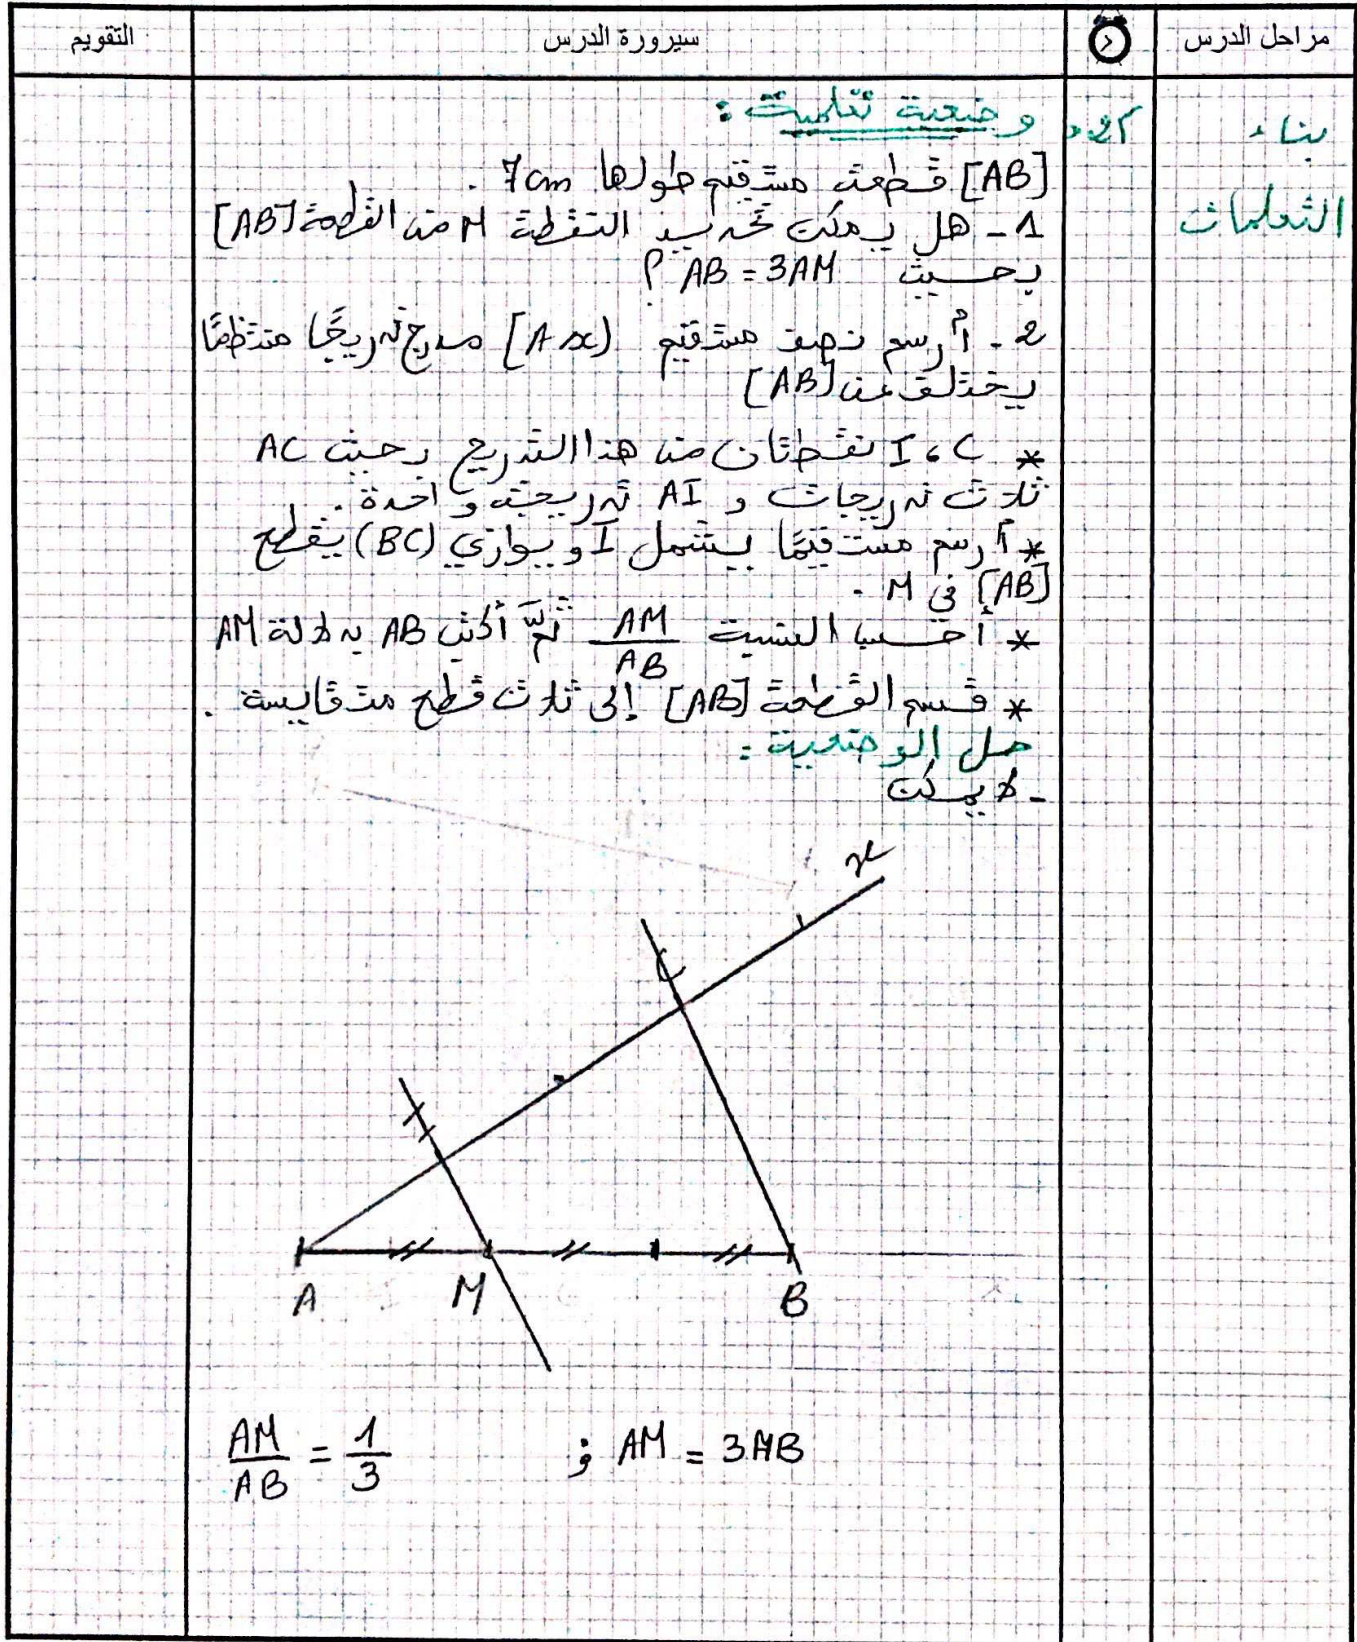 مراحل الدرس
سيرورة الدرس
التقويم
بناء
التعلمات
وضعية تعلمية :
[AB] قطعة مستقيم طولها 7cm .
1 - هل يمكن تحديد النقطة M من القطعة [AB]
بحيث AB = 3AM ؟
2 - أرسم نصف مستقيم [Ax) مدرج تدريجًا منتظمًا
يختلف عن [AB]
* I ، C نقطتان من هذا التدريج بحيث AC
ثلاث تدريجات و AI تدريجة واحدة .
* أرسم مستقيمًا يشمل I و يوازي (BC) يقطع
[AB] في M .
* أحسب النسبة AM/AB ثمّ أكتب AB بدلالة AM
* قسم القطعة [AB] إلى ثلاث قطع متقايسة .
حل الوضعية :
- لا يمكن
x
C
A
M
B
AM/AB = 1/3 ; AM = 3AB